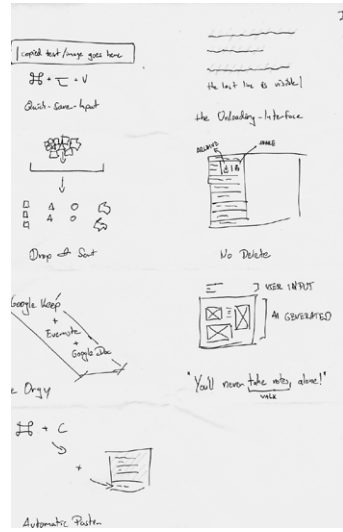 copied text/image goes here
⌘ + ⌥ + V
Quick-Save-Input
Drop & Sort
Google Keep
+
Evernote
+
Google Doc
e Orgy
⌘ + C
+
Automatic Paster
the last line is visible!
the Unloading-Interface
SHARE
No Delete
USER INPUT
AI GENERATED
"You'll never take notes alone!"
WALK